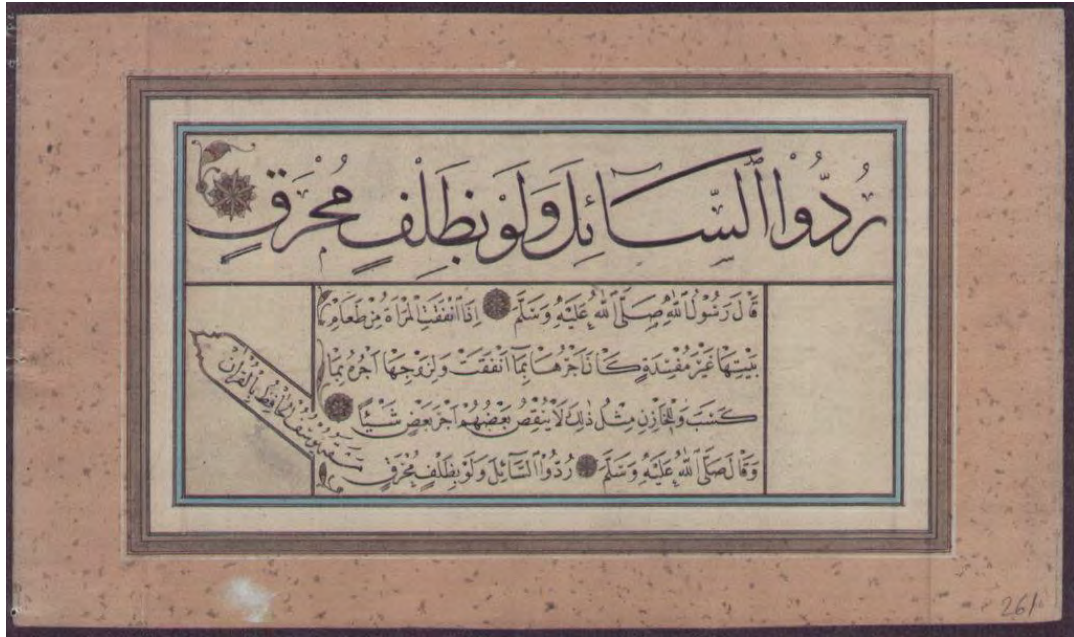 رُدُّوا ٱلسَّآئِلَ وَلَوْ بِظِلْفٍ مُحْرَقٍ
قَالَ رَسُولُ اللّٰهِ صَلَّى اللّٰهُ عَلَيْهِ وَسَلَّمَ اِذَا اَنْفَقَتِ الْمَرْاَةُ مِنْ طَعَامِ
بَيْتِهَا غَيْرَ مُفْسِدَةٍ كَانَ اَجْرُهَا بِمَا اَنْفَقَتْ وَلِزَوْجِهَا اَجْرُهُ بِمَا
كَسَبَ وَلِلْخَازِنِ مِثْلُ ذٰلِكَ لَا يَنْقُصُ بَعْضُهُمْ اَجْرَ بَعْضٍ شَيْئًا
وَقَالَ صَلَّى اللّٰهُ عَلَيْهِ وَسَلَّمَ رُدُّوا السَّآئِلَ وَلَوْ بِظِلْفٍ مُحْرَقٍ
يُوسُف الحَافِظ بِالقُرْاٰن
261